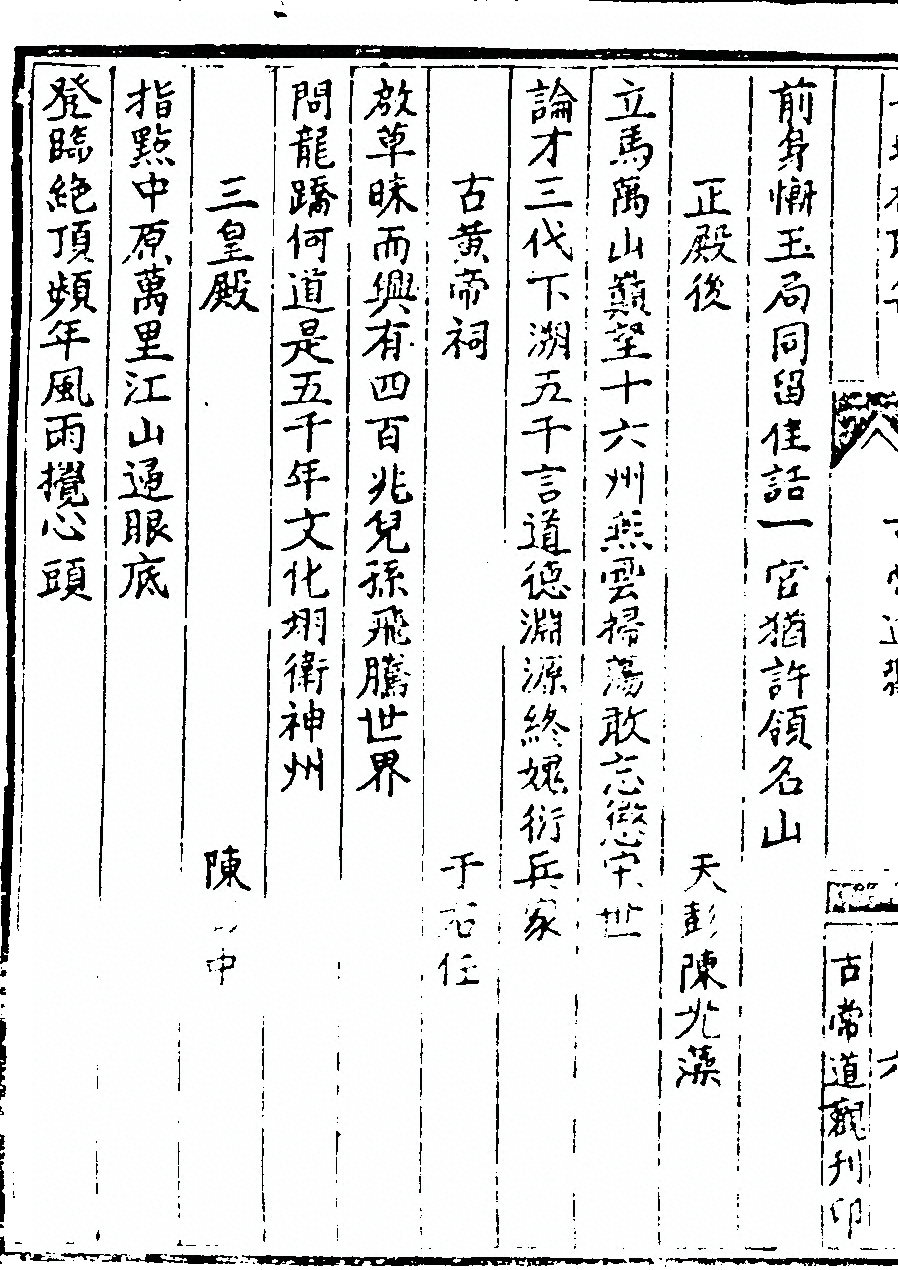 前身慚玉局同留佳話一官猶許領名山
正殿後　天彭陳兆藻
立馬萬山巔望十六州燕雲掃蕩敢忘懲宋世
論才三代下溯五千言道德淵源終媿衍兵家
古黄帝祠　于右任
啟草昧而興有四百兆兒孫飛騰世界
問龍蹻何道是五千年文化翊衛神州
三皇殿　陳 中
指點中原萬里江山通眼底
登臨絶頂頻年風雨攪心頭
古常道觀刊印